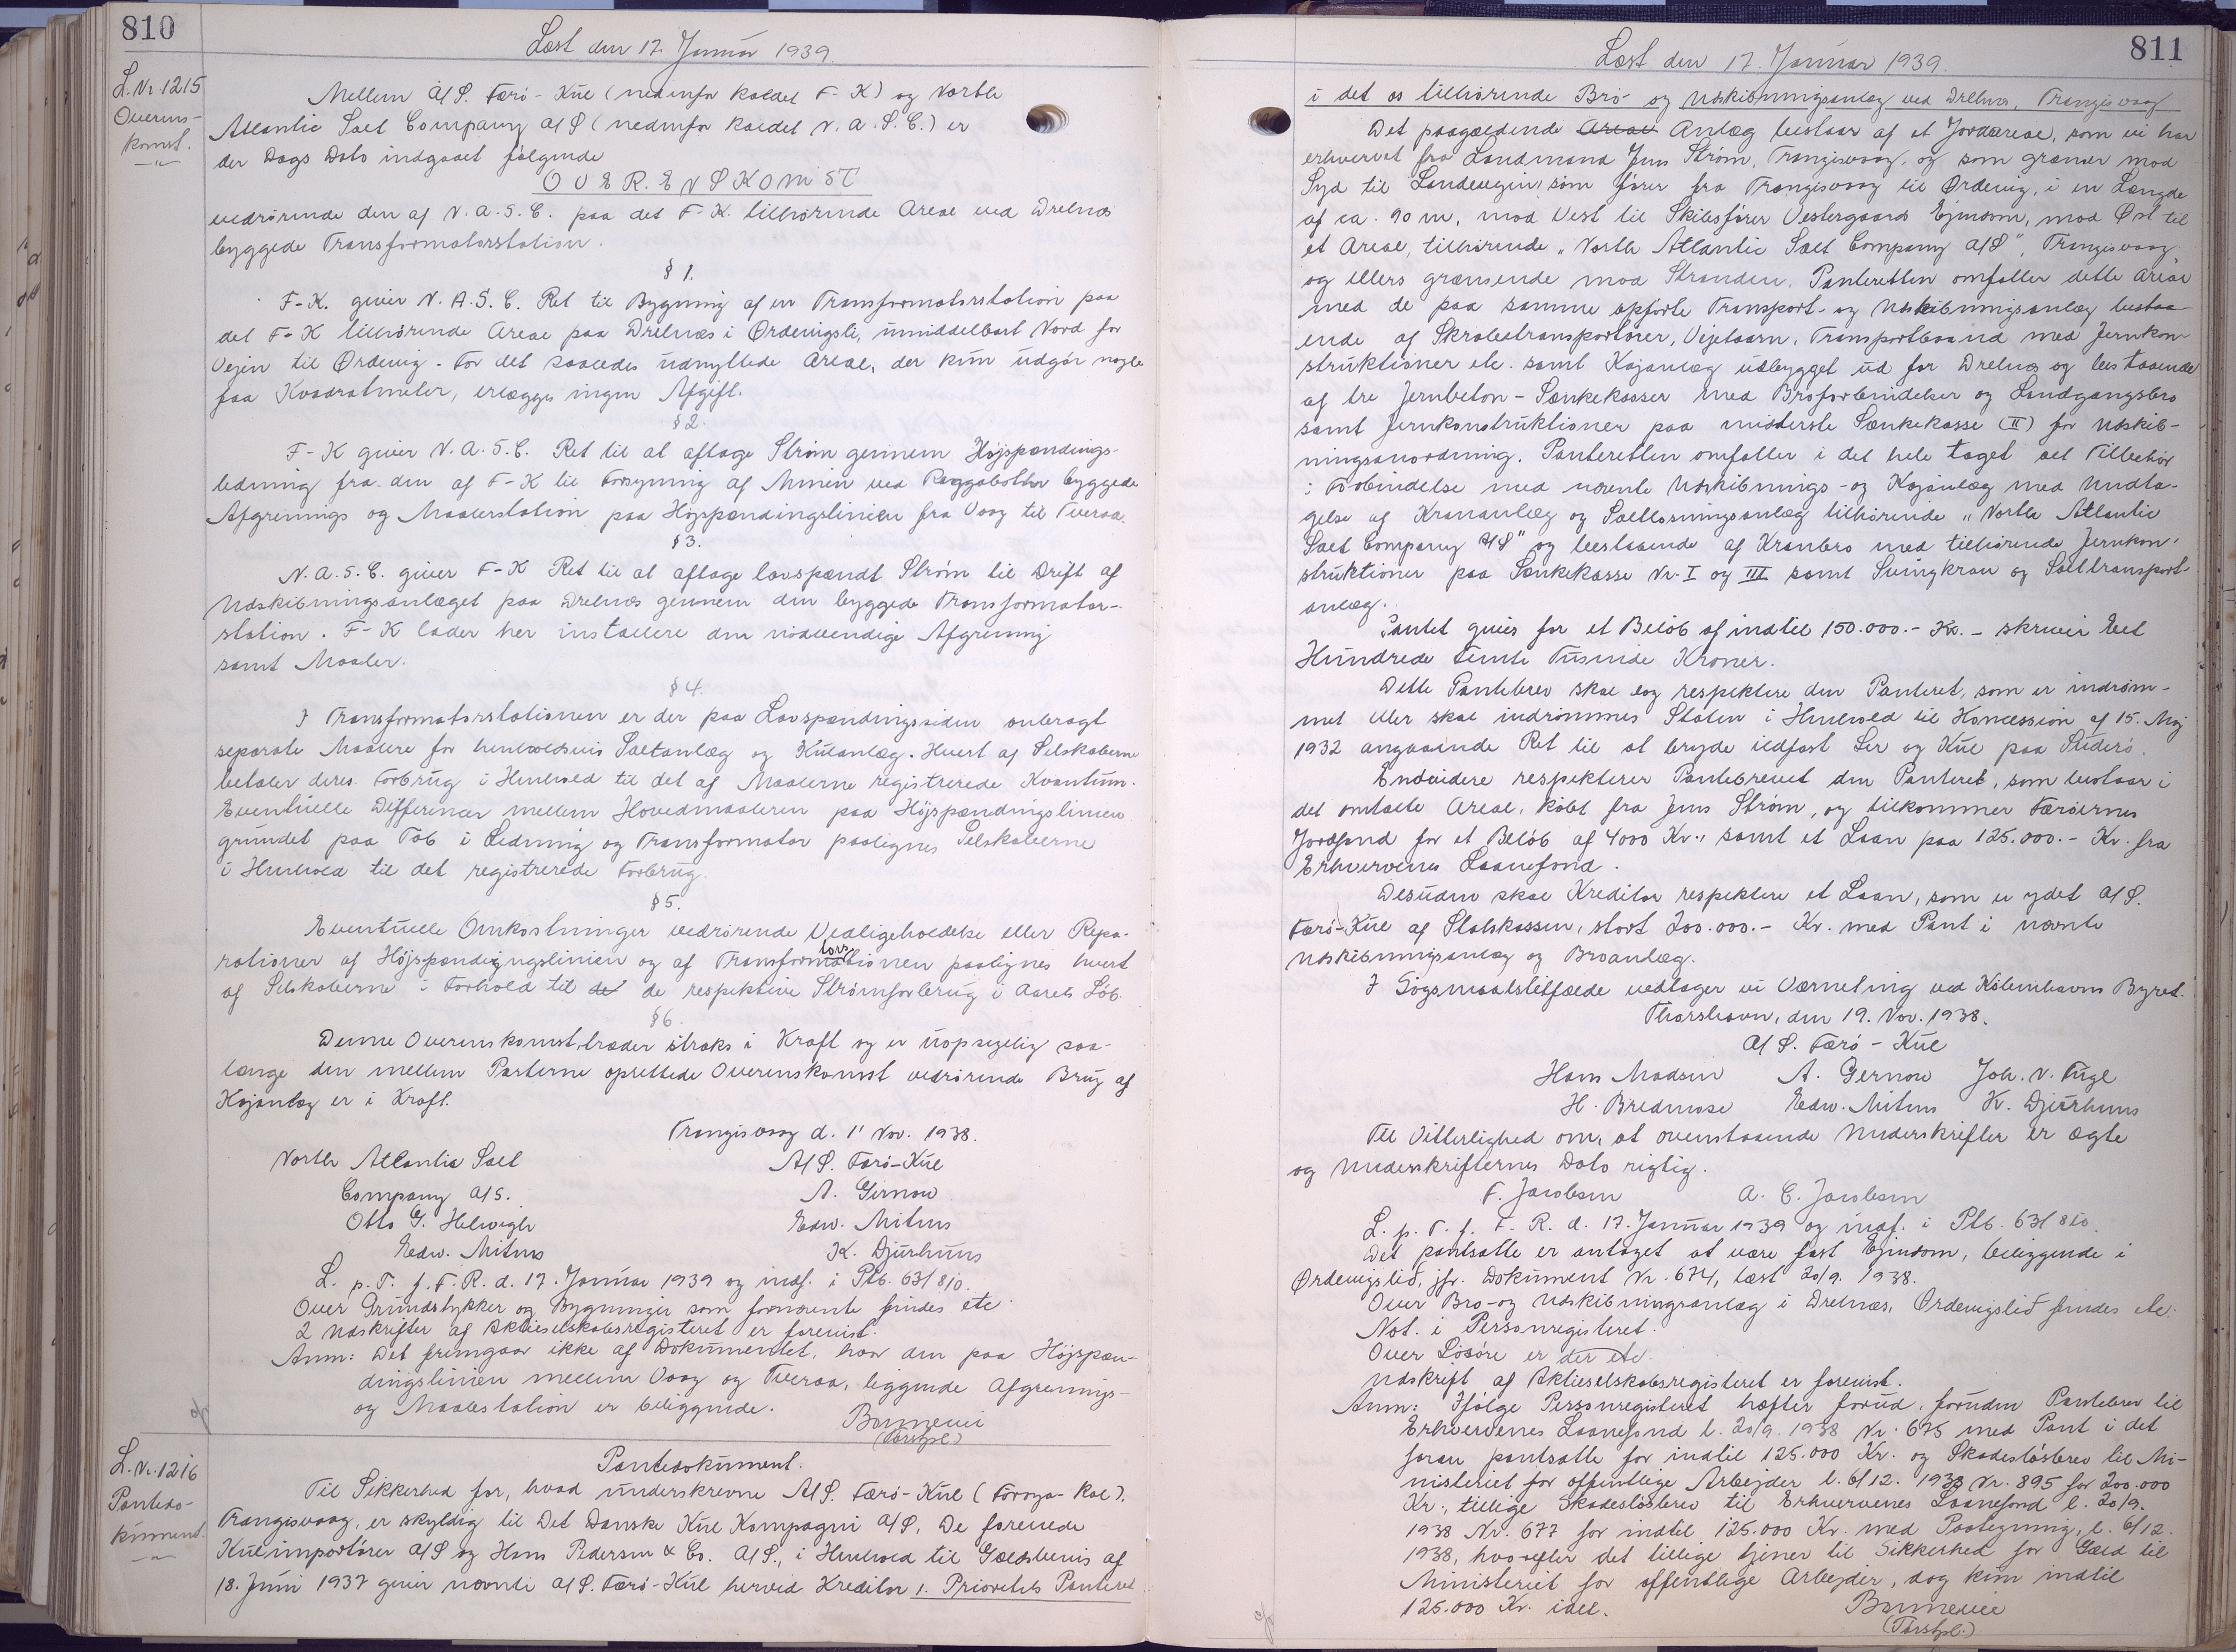 810
Læst den 17. Januar 1939.
L. Nr. 1215
Overens-
komst.
Mellem A/S. Færø-Kul (nedenfor kaldet F-K) og North
Atlantic Salt Company A/S (nedenfor kaldet N.A.S.C.) er
der Dags Dato indgaaet følgende
OVERENSKOMST
vedrørende den af N.A.S.C. paa det F-K. tilhørende Areal ved Drelnæs
byggede Transformatorstation.
§ 1.
F-K. giver N.A.S.C. Ret til Bygning af en Transformatorstation paa
det F-K tilhørende Areal paa Drelnæs i Ørdevigsli, umiddelbart Nord for
Vejen til Ørdevig. For det saaledes udnyttede Areal, der kun udgør nogle
faa Kvadratmeter, erlægges ingen Afgift.
§ 2.
F-K giver N.A.S.C. Ret til at aftage Strøm gennem Højspændings-
ledning fra den af F-K til Forsyning af Minen ved Raggabotter byggede
Afgrenings og Maalerstation paa Højspændingslinien fra Vaag til Tveraa.
§ 3.
N.A.S.C. giver F-K Ret til at aftage lavspændt Strøm til Drift af
Udskibningsanlæget paa Drelnæs gennem den byggede Transformator-
station. F-K lader her installere den nødvendige Afgrening
samt Maaler.
§ 4.
I Transformatorstationen er der paa Lavspændingssiden anbragt
separate Maalere for henholdsvis Saltanlæg og Kulanlæg. Hvert af Selskaberne
betaler deres Forbrug i Henhold til det af Maalerne registrerede Kvantum.
Eventuelle Differencer mellem Hovedmaaleren paa Højspændingslinien
grundet paa Tab i Ledning og Transformator paalignes Selskaberne
i Henhold til det registrerede Forbrug.
§ 5.
Eventuelle Omkostninger vedrørende Vedligeholdelse eller Repa-
rationer af Højspændingslinien og af Transformatorstationen paalignes hvert
af Selskaberne i Forhold til de de respektive Strømforbrug i Aarets Løb.
§ 6.
Denne Overenskomst træder straks i Kraft og er uopsigelig saa-
længe den mellem Parterne oprettede Overenskomst vedrørende Brug af
Kajanlæg er i Kraft.
Trangisvaag d. 1' Nov. 1938.
North Atlantic Salt A/S. Færø-Kul
Company A/S. A. Gernow
Otto G. Helwigh Edw. Mitens
Edw. Mitens K. Djurhuus
L. p. T. f. F. R. d. 17. Januar 1939 og indf. i Ptb. 63/810.
Over Grundstykker og Bygninger som fornævnte findes etc.
2 Udskrifter af Aktieselskabsregisteret er forevist.
Anm: Det fremgaar ikke af Dokumentet, hvor den paa Højspæn-
dingslinien mellem Vaag og Tveraa, liggende Afgrenings-
og Maalestation er beliggende.
(Forstpl.)
L. Nr. 1216
Pantedo-
kument.
Pantedokument.
Til Sikkerhed for, hvad underskrevne A/S. Færø-Kul (Føroya-Kol),
Trangisvaag, er skyldig til Det Danske Kul Kompagni A/S, De forenede
Kulimportører A/S og Hans Pedersen & Co. A/S., i Henhold til Gældsbevis af
18. Juni 1937 giver nævnte A/S. Færø-Kul herved Kreditor 1. Prioritets Panteret
811
Læst den 17. Januar 1939.
i det os tilhørende Bro- og Udskibningsanlæg ved Drelnæs, Trangisvaag
Det paagældende Areal Anlæg bestaar af et Jordareal, som vi har
erhvervet fra Landmand Jens Strøm, Trangisvaag, og som grænser mod
Syd til Landevejen, som fører fra Trangisvaag til Ørdevig, i en Længde
af ca. 90 m, mod Vest til Skibsfører Vestergaards Ejendom, mod Øst til
et Areal, tilhørende "North Atlantic Salt Company A/S", Trangisvaag
og ellers grænsende mod Stranden. Panteretten omfatter dette Areal
med de paa samme opførte Transport- og Udskibningsanlæg bestaa-
ende af Skrabetransportører, Vejetaarn, Transportbaand med Jernkon-
struktioner etc. samt Kajanlæg udbygget ud for Drelnæs og bestaaende
af tre Jernbeton-Sænkekasser med Broforbindelser og Landgangsbro
samt Jernkonstruktioner paa midterste Sænkekasse (II) for Udskib-
ningsanordning. Panteretten omfatter i det hele taget alt Tilbehør
i Forbindelse med nævnte Udskibnings- og Kajanlæg med Undta-
gelse af Krananlæg og Saltlosningsanlæg tilhørende "North Atlantic
Salt Company A/S" og bestaaende af Kranbro med tilhørende Jernkon-
struktioner paa Sænkekasse Nr. I og III samt Svingkran og Salttransport-
anlæg.
Pantet gives for et Beløb af indtil 150.000.- Kr. - skriver Eet
Hundrede Femti Tusinde Kroner.
Dette Pantebrev skal dog respektere den Panteret, som er indrøm-
met eller skal indrømmes Staten i Henhold til Koncession af 15. Maj
1932 angaaende Ret til at bryde ildfast Ler og Kul paa Suderø.
Endvidere respekterer Pantebrevet den Panteret, som bestaar i
det omtalte Areal, købt fra Jens Strøm, og tilkommer Færøernes
Jordfond for et Beløb af 4000 Kr., samt et Laan paa 125.000.- Kr. fra
Erhvervenes Laanefond.
Desuden skal Kreditor respektere et Laan, som er ydet A/S.
Færø-Kul af Statskassen, stort 200.000.- Kr. med Pant i nævnte
Udskibningsanlæg og Broanlæg.
I Søgsmaalstilfælde vedtager vi Værneting ved Københavns Byret.
Thorshavn, den 19. Nov. 1938.
A/S. Færø-Kul
Hans Madsen A. Gernow Joh. N. Fugl
H. Bredmose Edw. Mitens K. Djurhuus
Til Vitterlighed om, at ovenstaaende Underskrifter er ægte
og Underskrifternes Dato rigtig.
F. Jacobsen A. C. Jacobsen
L. p. T. f. F. R. d. 17. Januar 1939 og indf. i Ptb. 63/810.
Det pantsatte er antaget at være fast Ejendom, beliggende i
Ørdevigslið, jfr. Dokument Nr. 674, læst 20/9. 1938.
Over Bro- og Udskibningsanlæg i Drelnæs, Ørdevigslið findes etc.
Not. i Personregisteret.
Over Løsøre er der etc.
Udskrift af Aktieselskabsregisteret er forevist.
Anm: Ifølge Personregisteret hæfter forud, foruden Pantebrev til
Erhvervenes Laanefond l. 20/9. 1938 Nr. 675 med Pant i det
foran pantsatte for indtil 125.000 Kr. og Skadesløsbrev til Mi-
nisteriet for offentlige Arbejder l. 6/12. 1938 Nr. 895 for 200.000
Kr., tillige Skadesløsbrev til Erhvervenes Laanefond l. 20/9.
1938 Nr. 677 for indtil 125.000 Kr. med Paategning, l. 6/12.
1938, hvorefter det tillige tjener til Sikkerhed for Gæld til
Ministeriet for offentlige Arbejder, dog kun indtil
125.000 Kr. ialt.
(Forstpl.)